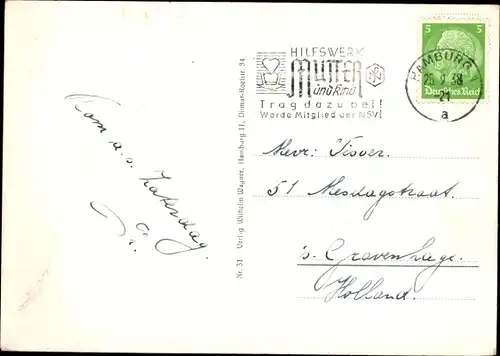 HILFSWERK
MUTTER
und Kind
Trag dazu bei!
Werde Mitglied der NSV!
HAMBURG
25.9.38
21
a
5 5
Deutsches Reich
Kom a.s. Zaterdag.
Mevr. Visser.
51 Mesdagstraat.
's-Gravenhage.
Holland.
Nr. 31 Verlag Wilhelm Wagner, Hamburg 11, Ditmar-Koelstr. 34